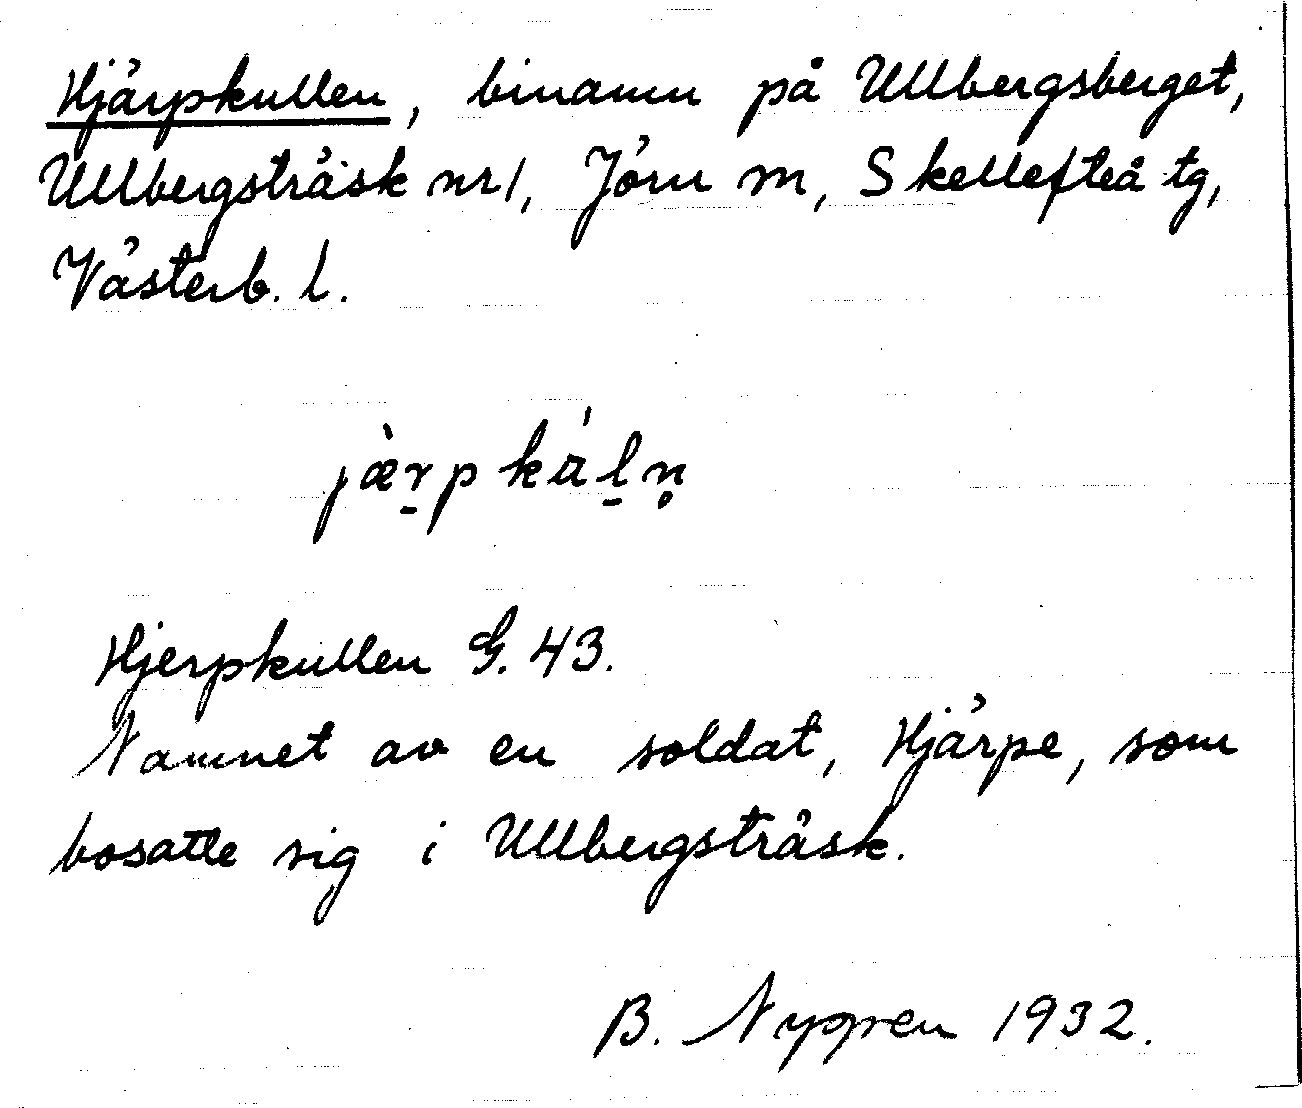 Hjärpkullen, binamn på Ullbergsberget,
Ullbergsträsk nr 1, Jörn sn, Skellefteå tg,
Västerb. l.
jæ̀r̠pkál̠n̥
Hjerpkullen G. 43.
Namnet av en soldat, Hjärpe, som
bosatte sig i Ullbergsträsk.
B. Nygren 1932.